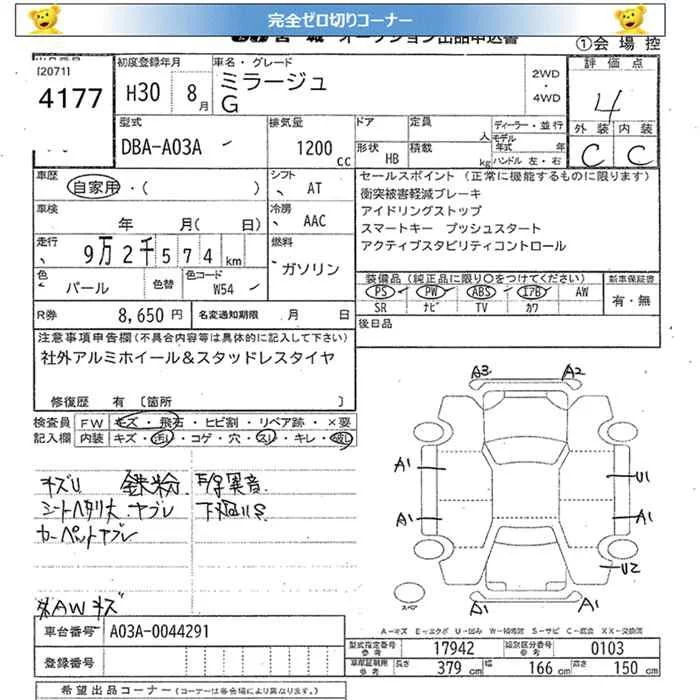 完全ゼロ切りコーナー
オークション出品申込書
①会 場 控
[2071]
4177
初度登録年月
H30 8月
車名・グレード
ミラージュ
G
2WD
・
4WD
評 価 点
4
外 装 内 装
C C
型式
DBA-A03A
排気量
1200 cc
ドア
定員
人
形状
HB
積載
kg
ディーラー・並行
モデル年式 年
ハンドル 左・右
車歴
自家用・( )
シフト
AT
車検
年 月( 日)
冷房
AAC
走行
9万2千574km
燃料
ガソリン
色
パール
色替
色コード
W54
R券 8,650円
名変通知期限 月 日
セールスポイント (正常に機能するものに限ります)
衝突被害軽減ブレーキ
アイドリングストップ
スマートキー プッシュスタート
アクティブスタビリティコントロール
装備品 (純正品に限り〇をつけてください) 新車保証書
PS PW ABS エアB AW
SR ナビ TV カワ
有・無
後日品
注意事項申告欄(不具合内容等は具体的に記入して下さい)
社外アルミホイール&スタッドレスタイヤ
修復歴 有 [箇所 ]
検査員記入欄
FW キズ・飛石・ヒビ割・リペア跡・×要
内装 キズ・汚れ・コゲ・穴・スレ・キレ・破レ
キズU 鉄粉
シートヘタリ大 ヤブレ 下廻りS
カーペットヤブレ
外AWキズ
A3 A2
A1 U1
A1 A1
U2
スペア
A1 A1
A-キズ E-エクボ U-凹み W-補修跡 S-サビ C-腐食 XX-交換済
車台番号 A03A-0044291
登録番号
型式指定番号 参考 17942 類別区分番号 参考 0103
車庫証明用 参考 長さ 379 cm 幅 166 cm 高さ 150 cm
希望出品コーナー (コーナーは各会場により異なります。)